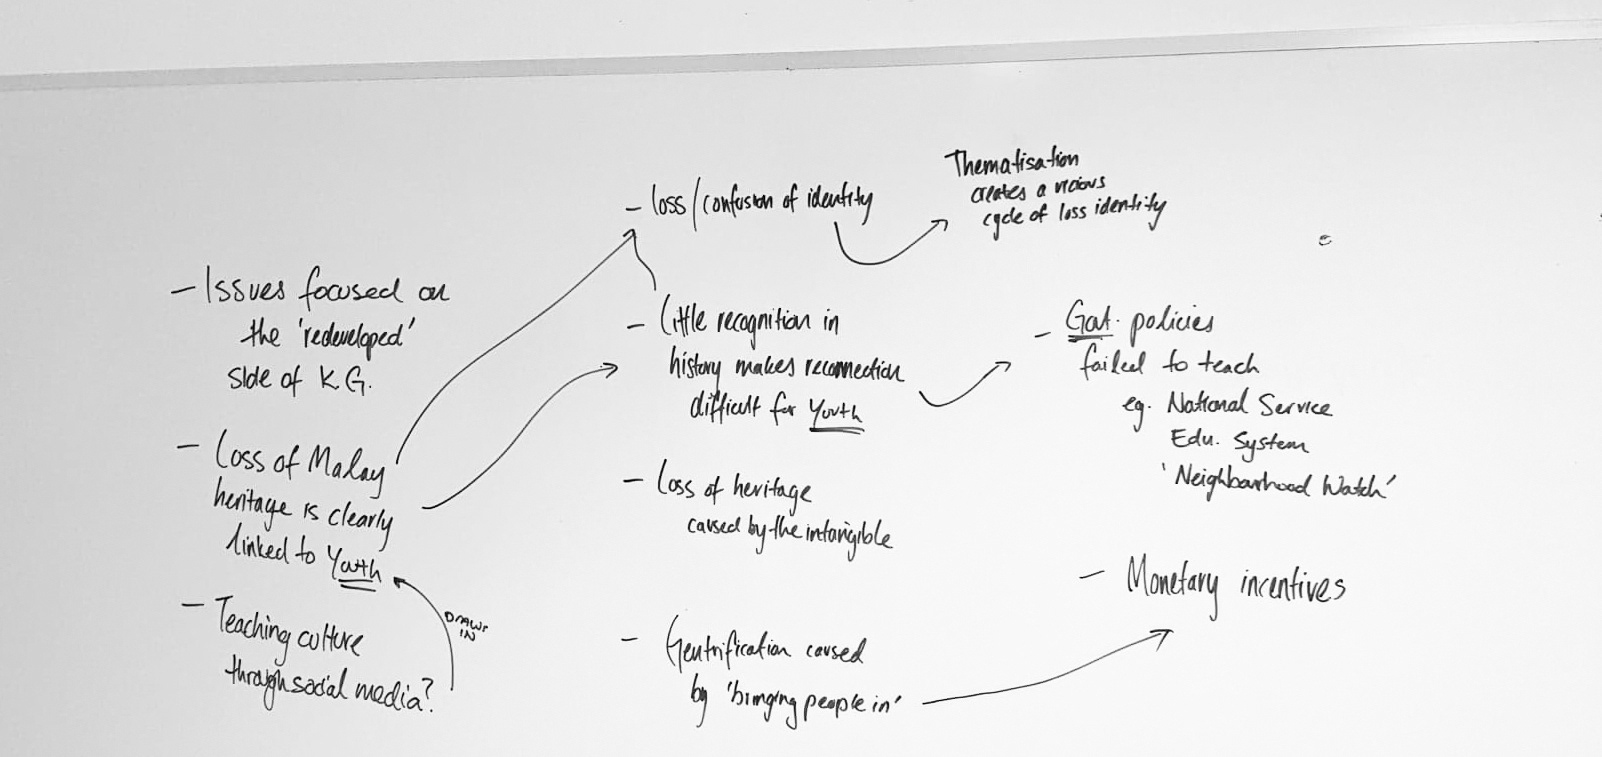 - Issues focused on
the 'redeveloped'
side of K.G.
- Loss of Malay
heritage is clearly
linked to Youth
- Teaching culture
through social media?
DRAWS
IN
- loss/confusion of identity
- Little recognition in
history makes reconnection
difficult for Youth
- Loss of heritage
caused by the intangible
- Gentrification caused
by 'bringing people in'
Thematisation
creates a vicious
cycle of loss identity
- Govt. policies
failed to teach
eg. National Service
Edu. System
'Neighbourhood Watch'
- Monetary incentives